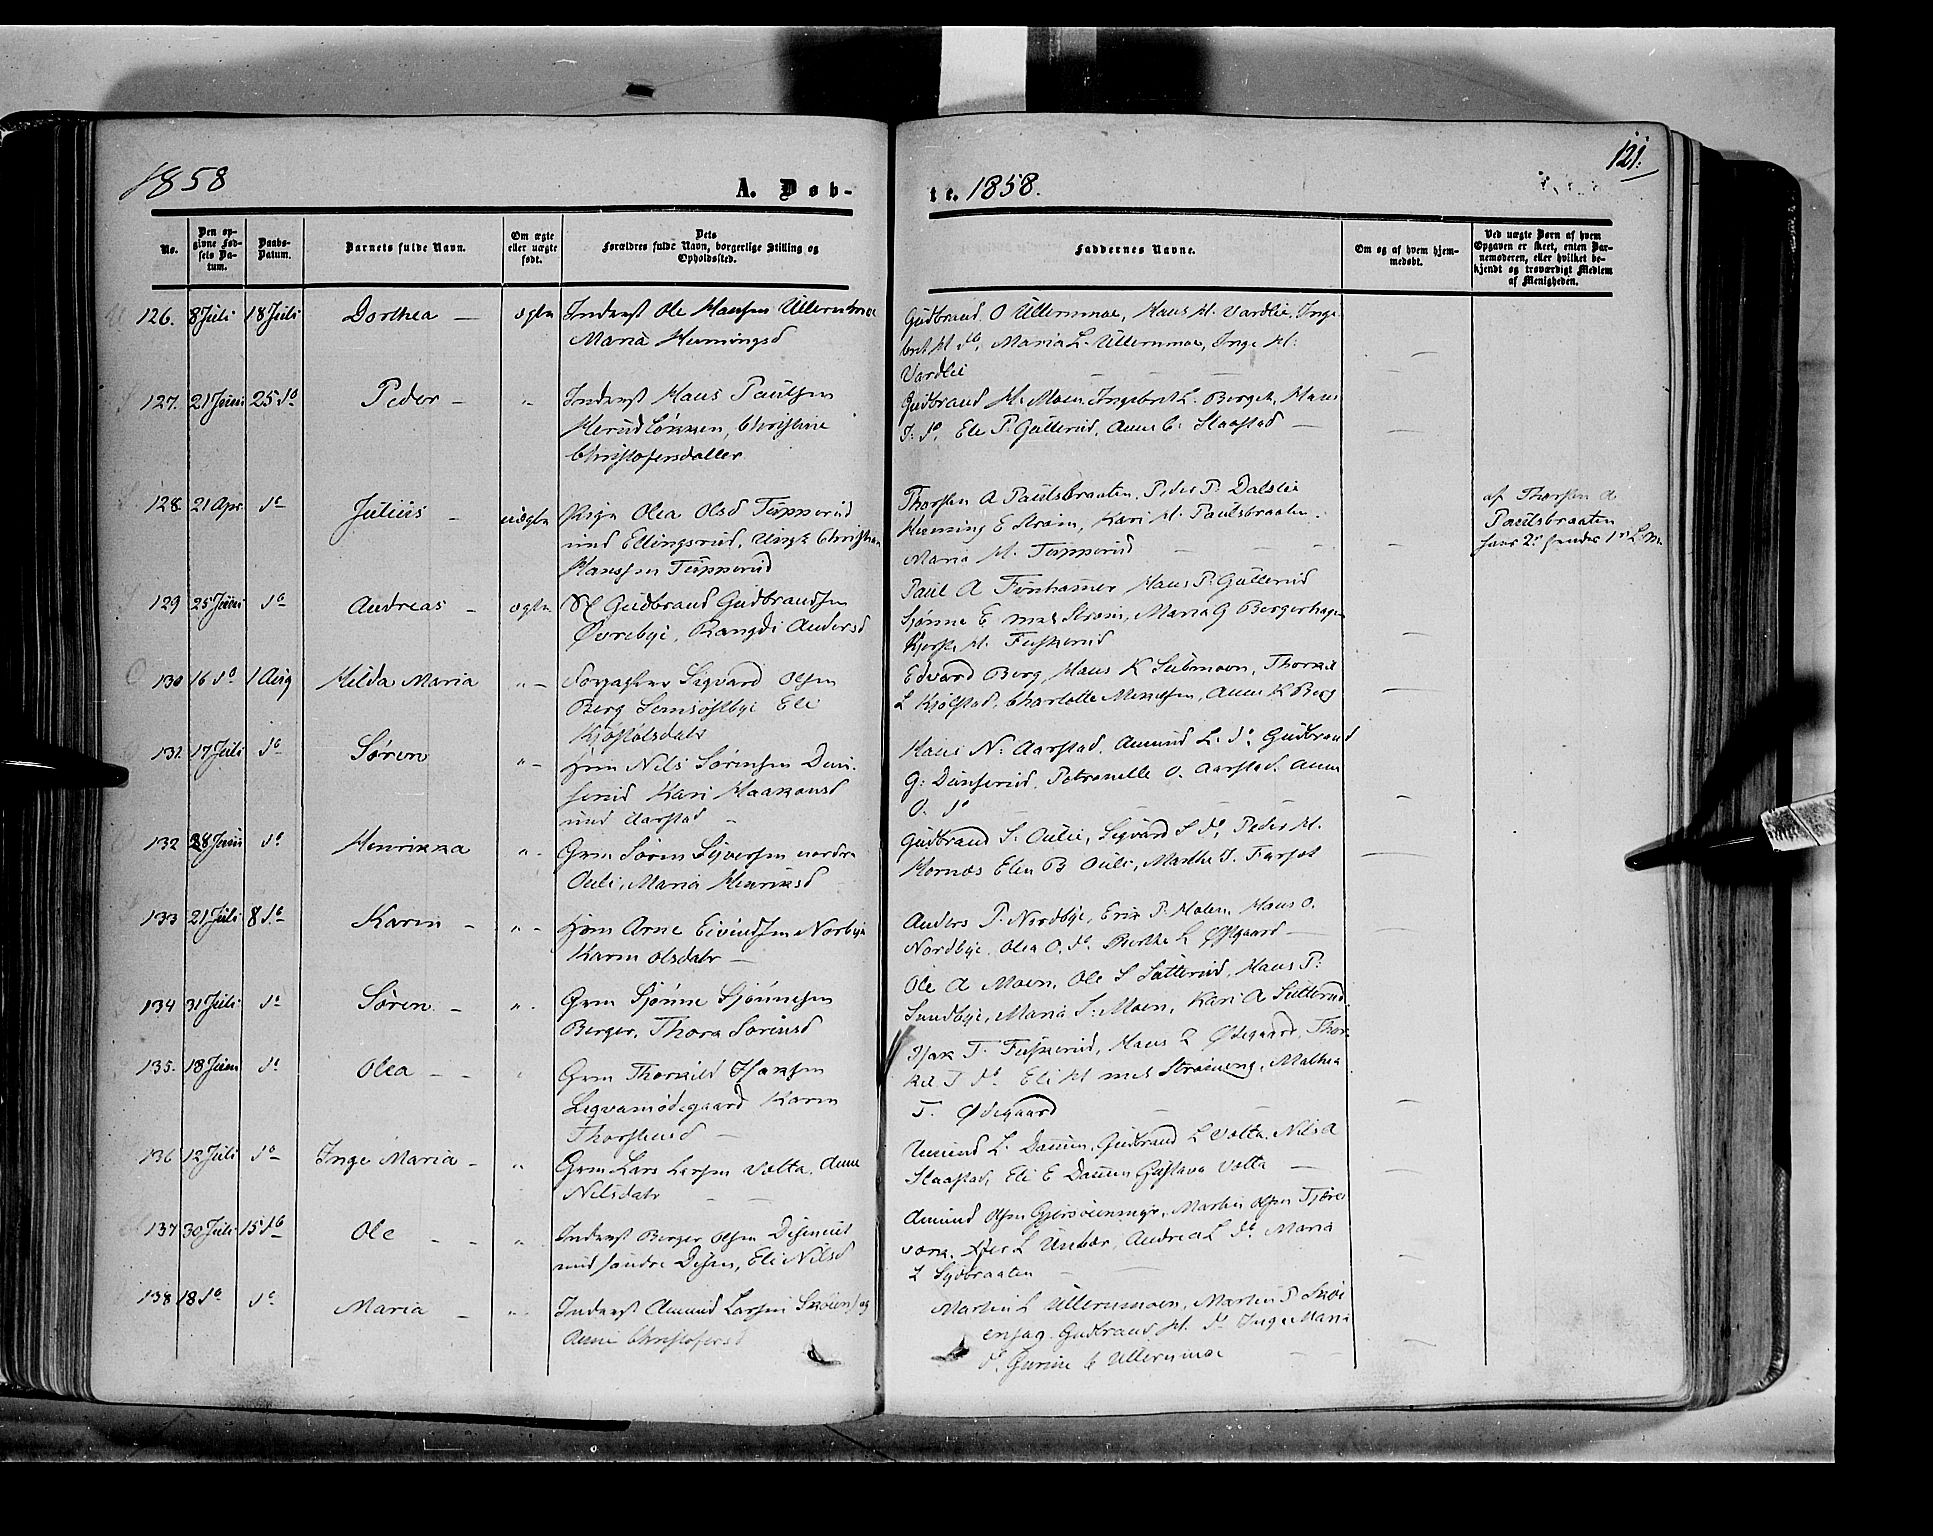 1858
A. Døb-
te. 1858.
121.
No.
Den op-
givne Fød-
sels Da-
tum.
Daabs-
Datum.
Barnets fulde Navn.
Om ægte
eller uægte
født.
Dets
Forældres fulde Navn, borgerlige Stilling og
Opholdssted.
Faddernes Navne.
Om og af hvem hjem-
medøbt.
Ved uægte Børn af hvem
Opgaven er skeet, enten Bar-
nemoderen, eller hvilket be-
kjendt og troværdigt Medlem
af Menigheden.
126. 8 Juli 18 Juli Dorthea - ægte Inderst Ole Hansen Ullernmoe
Maria Hemingsd
Gudbrand O Ullernmoe, Hans H. Vardlie, Inge
bret H do, Maria L. Ullernmoe, Inge H.
Vardlie
127. 21 Juni 25 do Peder - " Inderst Hans Paulsen
Christine
Christofersdatter
Gudbrand H. Moen, Ingebret L. Berget, Hans
J. do, Ele P. Gullerud, Anne C. Slaastad -
128 21 Apr do Julius - uægte Pige Olea Olsd Tupperud
und Ellingsrud, Ungk Christian
Hanssen Tupperud
Thorsten A Paulsbraaten, Peder P. Dalslie
Heming E Strøm, Kari H. Paulsbraaten.
Maria H. Tupperud
af Thorsten A
Paulsbraaten
hans 2' hendes 1' L.M.
129 25 Juni do Andreas - ægte Gudbrand Gudbrandsen
Øvrebye, Rangdi Andersd
Paul A Hans P. Gullerud
Sjønne E Strøm, Maria G Bergerhagen
H. Fuskerud
130 16 do 1 Aug Hilda Maria " - Forpagter Sigvard Olsen
Berg Eli
Kjøstolsdatr
Edvard Berg, Hans K Thorval
L Kjølstad, Charlotte Anne K Berg
131. 17 Juli do Søren " - Hm Nils Sørensen Dun-
serud Kari Haakonsd
und Aarstad
Hans N. Aarstad, Amund L. do Gudbrand
G. Dunserud, Petronelle O. Aarstad. Anne
O. do
132 28 Juni do Henrikka " - Grm Søren Sijversen nordre
Oulie, Maria Henriksd
Gudbrand S. Oulie, Sigvard S do, Peder H.
Kornæs Elen B Oulie, Marthe J.
133 21 Juli 8 do Karen - " - Hm Arne Eivindsen Norbye
Karen Olsdatr -
Anders P. Nordbye, Erik P. Molen, Hans O.
Nordbye, Olea O. do Berthe L -
134 31 Juli do Søren. - " - Grm Sjønne Sjønnesen
Berger, Thora Sørensd
Ole A Moen, Ole S Sætterud, Hans P.
Sundbye, Maria S. Moen, Kari A Sætterud
135. 18 Juni do Olea - - " Grm Thorkild Isaksen
Karen
Thorstensd -
Isak T. Fuskerud, Hans L Ødegaard, Thor-
kel I do Eli H Mathea
T. Ødegaard
136 12 Juli do Inge Maria - " Grm Lars Larsen Volta, Anne
Nilsdatr
Amund L. Damen, Gudbrand L Volta, Nils A
Slaastad, Eli E Damen Gustava Volta -
137 30 Juli 15 do Ole - - " Inderst Berger Olsen Disenrud
und søndre Disen, Eli Nilsd
Amund Olsen Martin Olsen
L Andrea L do Maria
L Sydbraaten
138 18 do do Maria - " - Inderst Amund Larsen
Anne Christofersd
Martin L Ullernmoen, Martin P.
ensag. Gudbrand H. do Inge Maria
do, Gurine C Ullernmoe